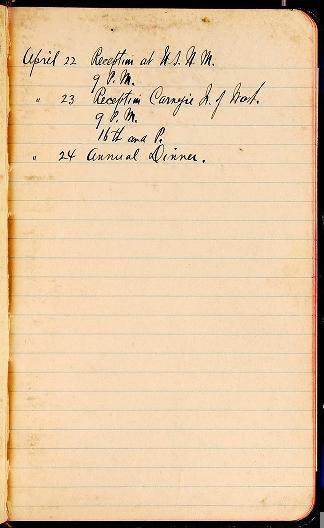 April 22 Reception at U.S.N.M.
9 P.M.
" 23 Reception Carnegie I. of Wash.
9 P.M.
16th and P.
" 24 Annual Dinner.